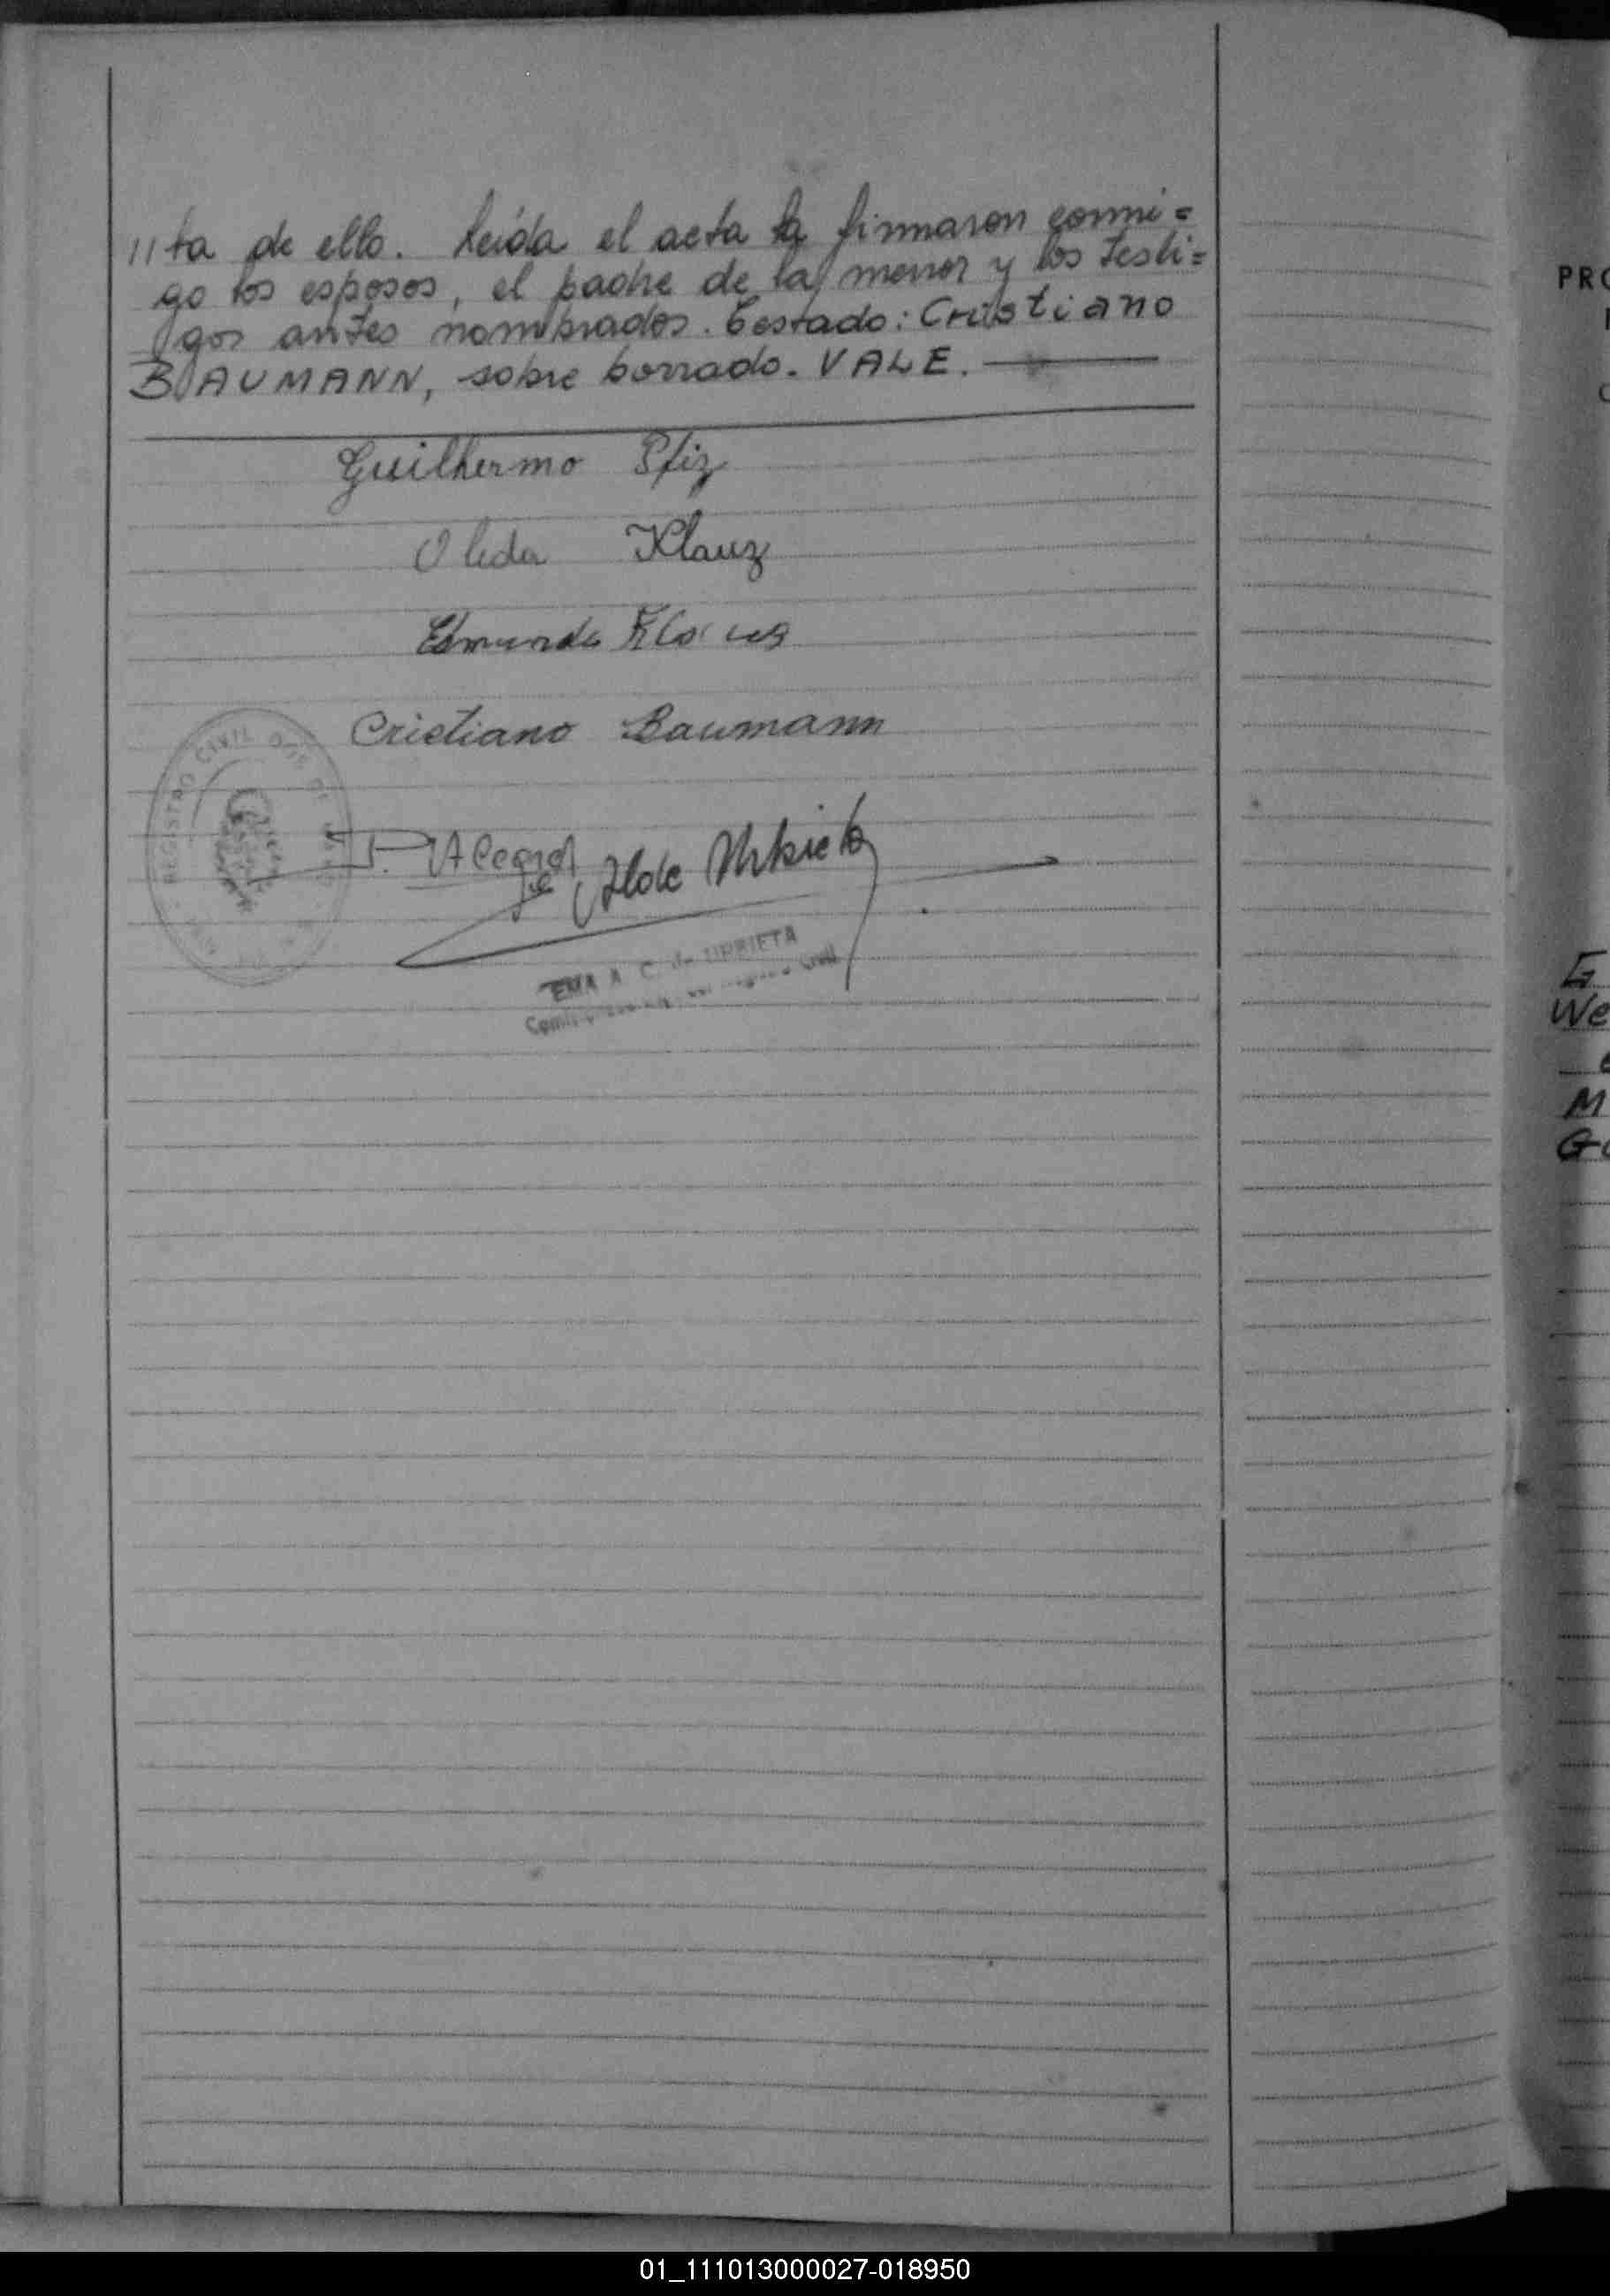 //ta de ello. Leída el acta la firmaron conmi=
go los esposos, el padre de la menor y los testi=
gos antes nombrados. Testado: Cristiano
BAUMANN, sobre borrado. VALE.
Guilhermo Pfiz
Oleda Klauz
Edmundo Klauz
Cristiano Baumann
REGISTRO CIVIL
EMA A. C. de URRIETA
PRO
We
M
01_111013000027-018950